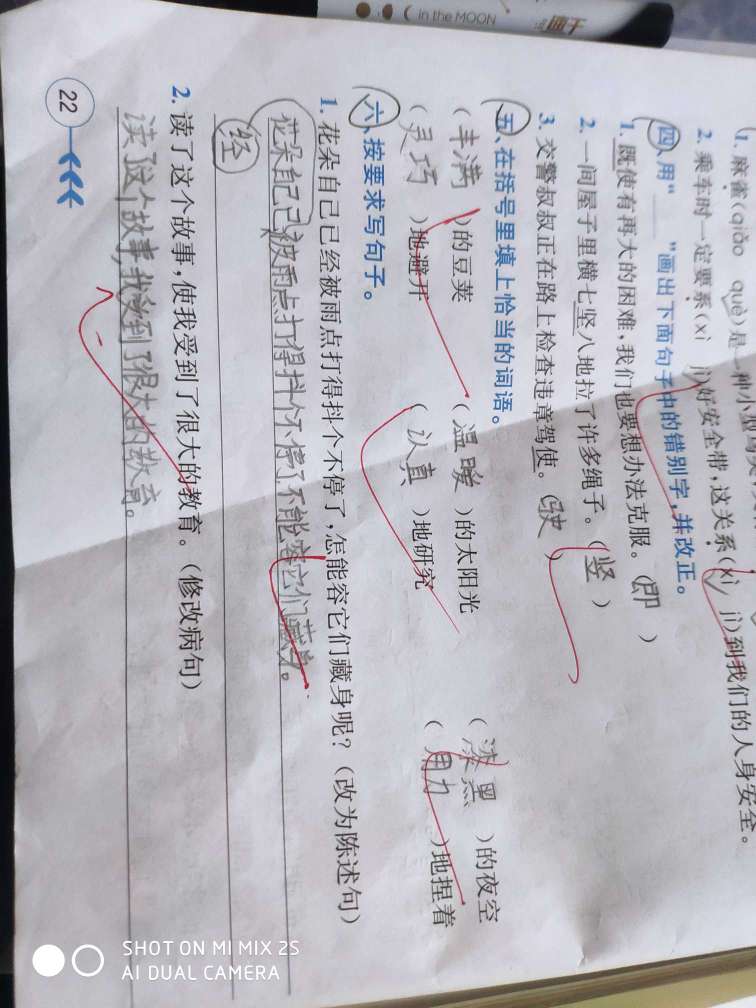 1. 麻雀(qiǎo què)是一种小型鸟类,
2. 乘车时一定要系(xì jì)好安全带,这关系(xì jì)到我们的人身安全。
四、用“____”画出下面句子中的错别字,并改正。
1. 既使有再大的困难,我们也要想办法克服。(即)
2. 一间屋子里横七坚八地拉了许多绳子。(竖)
3. 交警叔叔正在路上检查违章驾使。(驶)
五、在括号里填上恰当的词语。
(丰满)的豆荚 (温暖)的太阳光 (漆黑)的夜空
(灵巧)地避开 (认真)地研究 (用力)地捏着
六、按要求写句子。
1. 花朵自己已经被雨点打得抖个不停了,怎能容它们藏身呢?(改为陈述句)
花朵自己已被雨点打得抖个不停了不能容它们藏身。
经
2. 读了这个故事,使我受到了很大的教育。(修改病句)
读了这个故事,我受到了很大的教育。
22
in the MOON
SHOT ON MI MIX 2S
AI DUAL CAMERA